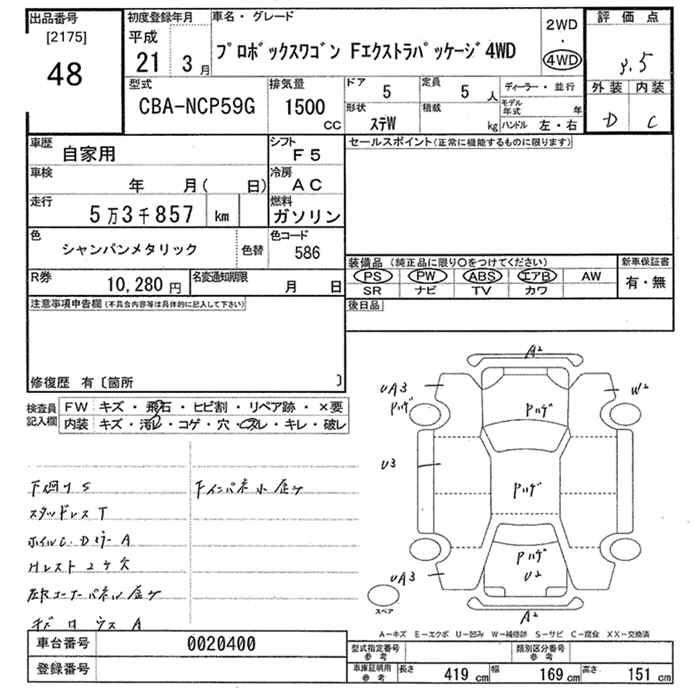 出品番号
[2175]
48
初度登録年月
平成
21 3月
車名・グレード
プロボックスワゴン Fエクストラパッケージ4WD
2WD
・
4WD
評価点
3.5
外装 内装
D C
型式
CBA-NCP59G
排気量
1500
CC
ドア 5
定員 5 人
ディーラー・並行
形状 ステW
積載 kg
モデル年式 年
ハンドル 左・右
車歴
自家用
シフト
F5
セールスポイント(正常に機能するものに限ります)
車検
年 月( 日)
冷房
AC
走行
5万3千857 km
燃料
ガソリン
色
シャンパンメタリック
色替
色コード
586
装備品(純正品に限り○をつけてください)
新車保証書
PS PW ABS エアB AW
SR ナビ TV カワ
有・無
R券
10,280円
名変通知期限
月 日
後日品
注意事項申告欄(不具合内容等は具体的に記入して下さい)
修復歴 有〔箇所 〕
検査員記入欄
FW キズ・飛石・ヒビ割・リペア跡・×要
内装 キズ・汚れ・コゲ・穴・スレ・キレ・破レ
A2
UA3
Pハゲ
Pハゲ
W2
U3
Pハゲ
Pハゲ
U2
UA3
A2
スペア
下廻りS
下インパネ小キズ
スタッドレスT
ホイルC.DミラーA
Hレスト2ヶ欠
A―キズ E―エクボ U―凹み W―補修跡 S―サビ C―腐食 XX―交換済
車台番号
0020400
登録番号
型式指定番号
参考
類別区分番号
参考
車庫証明用
参考
長さ 419 cm
幅 169 cm
高さ 151 cm